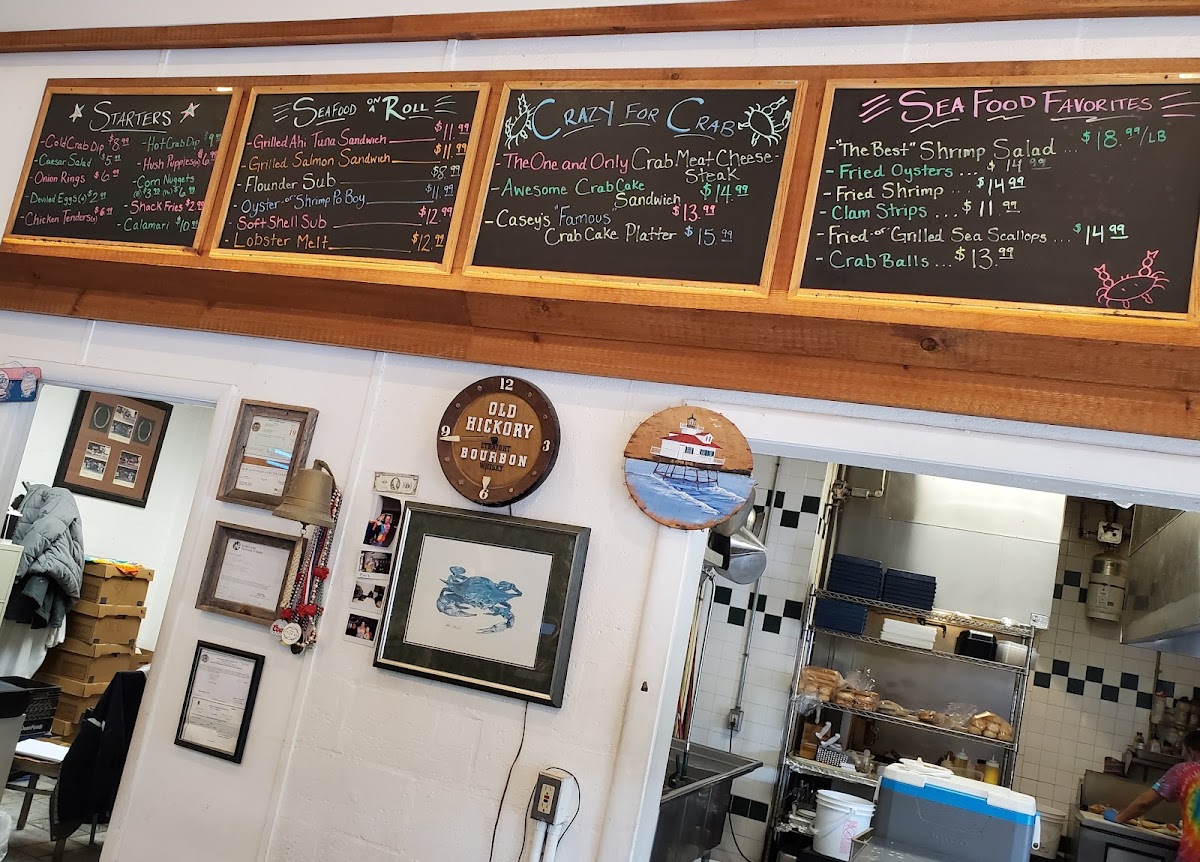 STARTERS
- Cold Crab Dip $8.99
- Caesar Salad $5.99
- Onion Rings $6.99
- Deviled Eggs(4) $2.99
- Chicken Tenders(4) $6.99
- Hot Crab Dip $9.99
- Hush Puppies
- Corn Nuggets
Shack Fries $2.99
- Calamari $10.99
SEAFOOD ON A ROLL
- Grilled Ahi Tuna Sandwich $11.99
- Grilled Salmon Sandwich $11.99
- Flounder Sub $8.99
- Oyster or Shrimp Po Boy $11.99
- Soft Shell Sub $12.99
- Lobster Melt $12.99
CRAZY FOR CRAB
- The One and Only Crab Meat Cheese-
Steak $14.99
- Awesome Crab Cake
Sandwich $13.99
- Casey's "Famous"
Crab Cake Platter $15.99
SEA FOOD FAVORITES
- "The Best" Shrimp Salad ... $18.99/LB
- Fried Oysters ... $14.99
- Fried Shrimp ... $14.99
- Clam Strips ... $11.99
- Fried or Grilled Sea Scallops ... $14.99
- Crab Balls ... $13.99
12
OLD
HICKORY
9
3
STRAIGHT
BOURBON
WHISKY
6